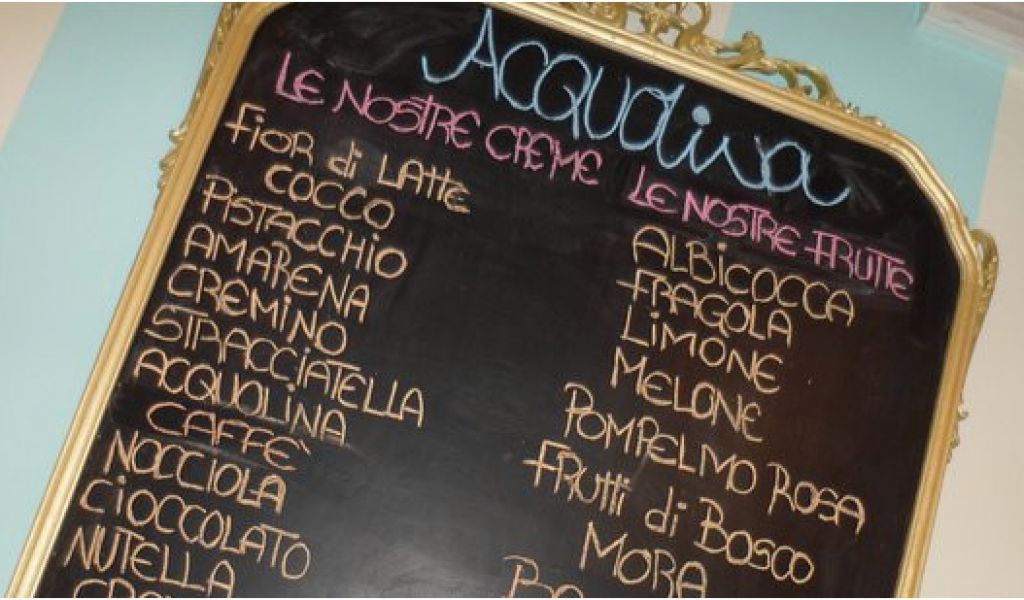 ACQUOliNA
LE NOSTRE CREME
FiOR di LAttE
COCCO
PISTACCHiO
AMARENA
CREMiNO
STRACCiATELLA
ACQUOLiNA
CAFFE'
NOCCiOLA
CiOCCOLATO
NUTELLA
LE NOSTRE FRUTTE
ALBiCOCCA
FRAGOLA
LiMONE
MELONE
POMPELMO ROSA
FRUtti di BOSCO
MORA